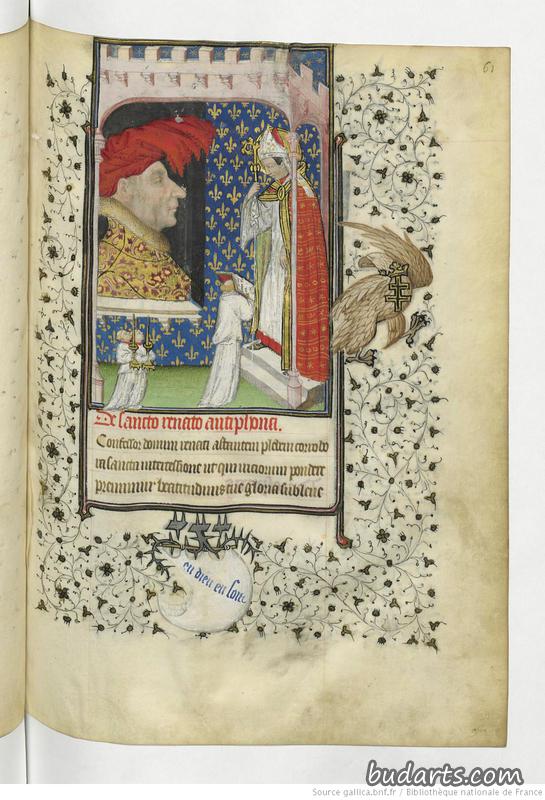 61
De sancto renato antiphona.
Confessor domini renati astantem plebem corrobo
ra sancta intercessione ut qui viciorum pondere
premimur beatitudinis tue gloria subleve
en dieu en soit
budarts.com
Source gallica.bnf.fr / Bibliothèque nationale de France